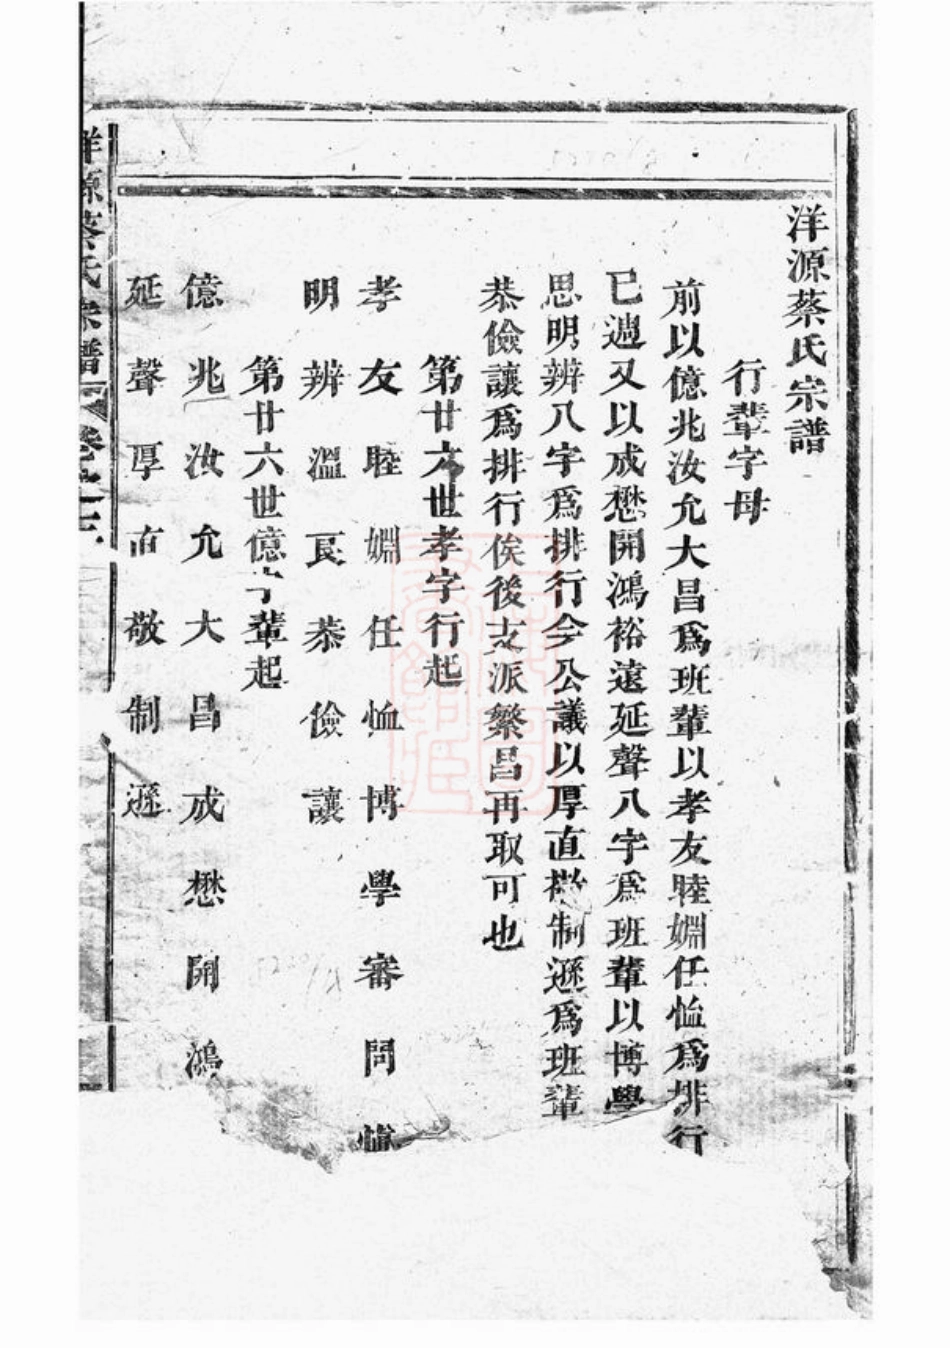 洋源蔡氏宗譜
行輩字母
前以億兆汝允大昌爲班輩以孝友睦婣任恤爲排行
已週又以成懋開鴻裕遠延聲八字爲班輩以博學
思明辨八字爲排行今公議以厚直敬制遜爲班輩
恭儉讓爲排行俟後支派繁昌再取可也
第廿六世孝字行起
孝友睦婣任恤博學審問愼
明辨溫良恭儉讓
第廿六世億字輩起
億兆汝允大昌成懋開鴻
延聲厚直敬制遜
洋源蔡氏宗譜